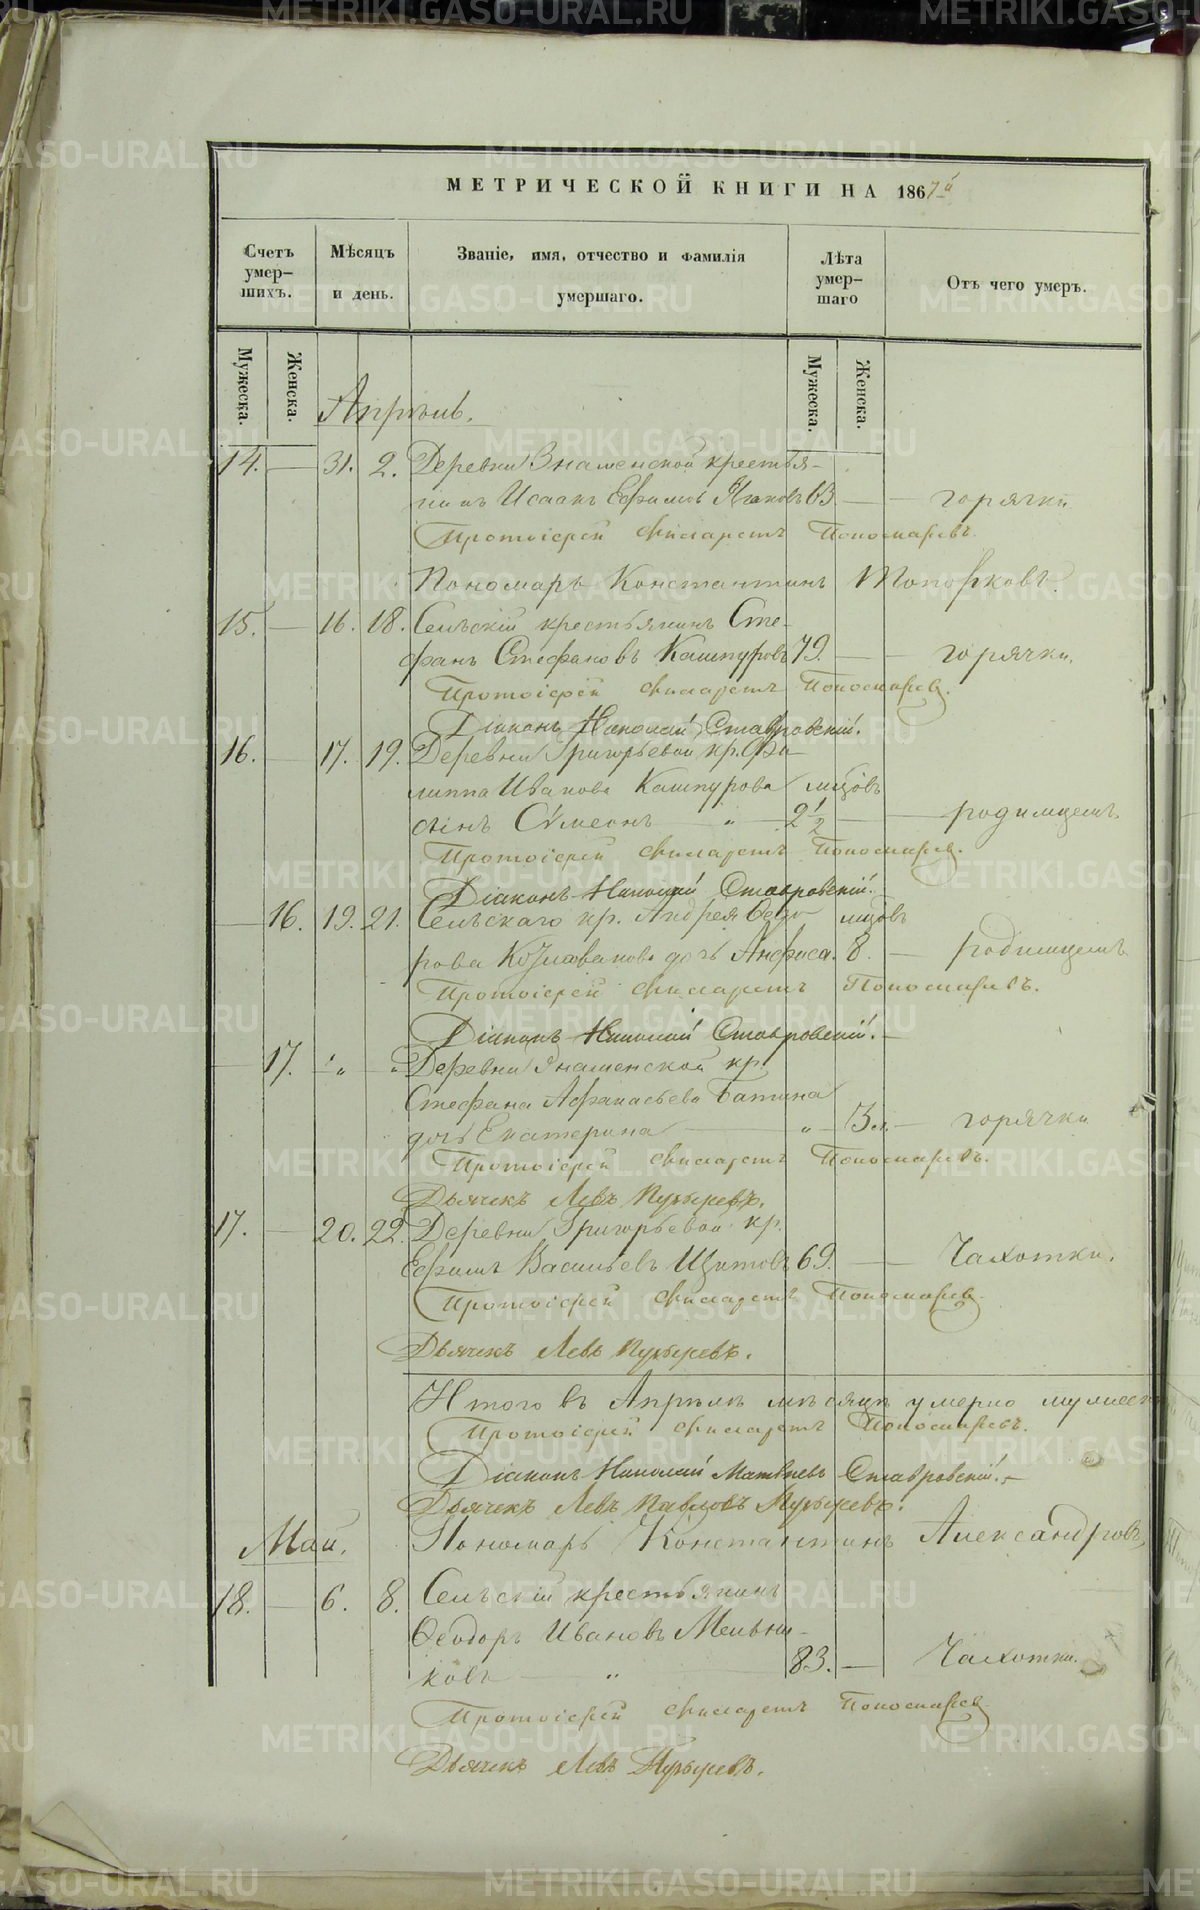 МЕТРИЧЕСКОЙ КНИГИ НА 1867й
Счетъ умер-шихъ.
Мѣсяцъ и день.
Званіе, имя, отчество и фамилія умершаго.
Лѣта умер-шаго
Отъ чего умеръ.
Мужеска.
Женска.
Мужеска.
Женска.
Апрѣль.
14. — 31. 2. Деревни Знаменской крестья-
нинъ Исаакъ Ефимовъ 63. — горячки
Протоіерей Филаретъ Пономаревъ.
Пономарь Константинъ Топорковъ.
15. — 16. 18. Сельскій крестьянинъ Сте-
фанъ Стефановъ Кашпуровъ 79. — горячки.
Протоіерей Филаретъ Пономаревъ.
Діаконъ Николай Ставровскій.
16. — 17. 19. Деревни Григорьевой кр. Фи-
липпа Иванова Кашпурова мѣсцовъ
сынъ Сѵмеонъ — „ — 2 1/2 — родимцемъ.
Протоіерей Филаретъ Пономаревъ.
Діаконъ Николай Ставровскій.
— 16. 19. 21. Сельскаго кр. Андрея Ѳедо- мѣсцовъ
рова дочь Анфиса. 8. — родимцемъ
Протоіерей Филаретъ Пономаревъ.
Діаконъ Николай Ставровскій. —
— 17. „ — „ Деревни Знаменской кр.
Стефана Афанасьева Батина
дочь Екатерина — „ — 3 л. — горячки
Протоіерей Филаретъ Пономаревъ.
Дьячекъ Левъ Пузыревъ.
17. — 20. 22. Деревни Григорьевой кр.
Ефимъ Васильевъ Щитовъ 69. — Чахотки.
Протоіерей Филаретъ Пономаревъ.
Дьячекъ Левъ Пузыревъ.
Итого въ Апрѣлѣ мѣсяцѣ умерло мужеска
Протоіерей Филаретъ Пономаревъ.
Діаконъ Николай Матвѣевъ Ставровскій. —
Дьячекъ Левъ Павловъ Пузыревъ.
Май. Пономарь Константинъ Александровъ
18. — 6. 8. Сельскій крестьянинъ
Ѳеодоръ Ивановъ Мельни-
ковъ — „ 83. — Чахотки.
Протоіерей Филаретъ Пономаревъ
Дьячекъ Левъ Пузыревъ.
METRIKI.GASO-URAL.RU